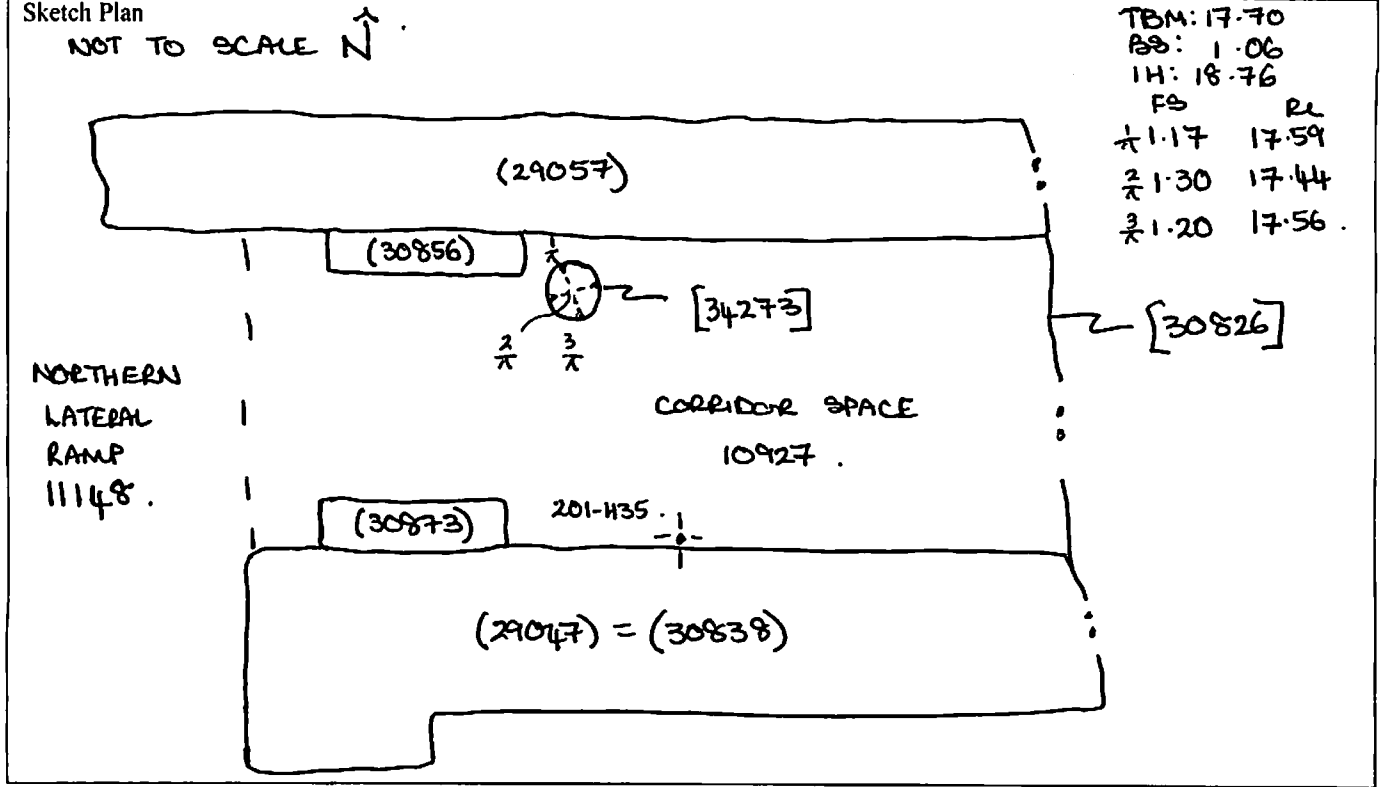 Sketch Plan
NOT TO SCALE N
TBM: 17.70
BS: 1.06
IH: 18.76
FS RL
1/π 1.17 17.59
2/π 1.30 17.44
3/π 1.20 17.56.
(29057)
(30856)
1/π
[34273]
2/π 3/π
[30826]
NORTHERN
LATERAL
RAMP
11148.
CORRIDOR SPACE
10927.
(30873)
201-435.
(29047) = (30838)